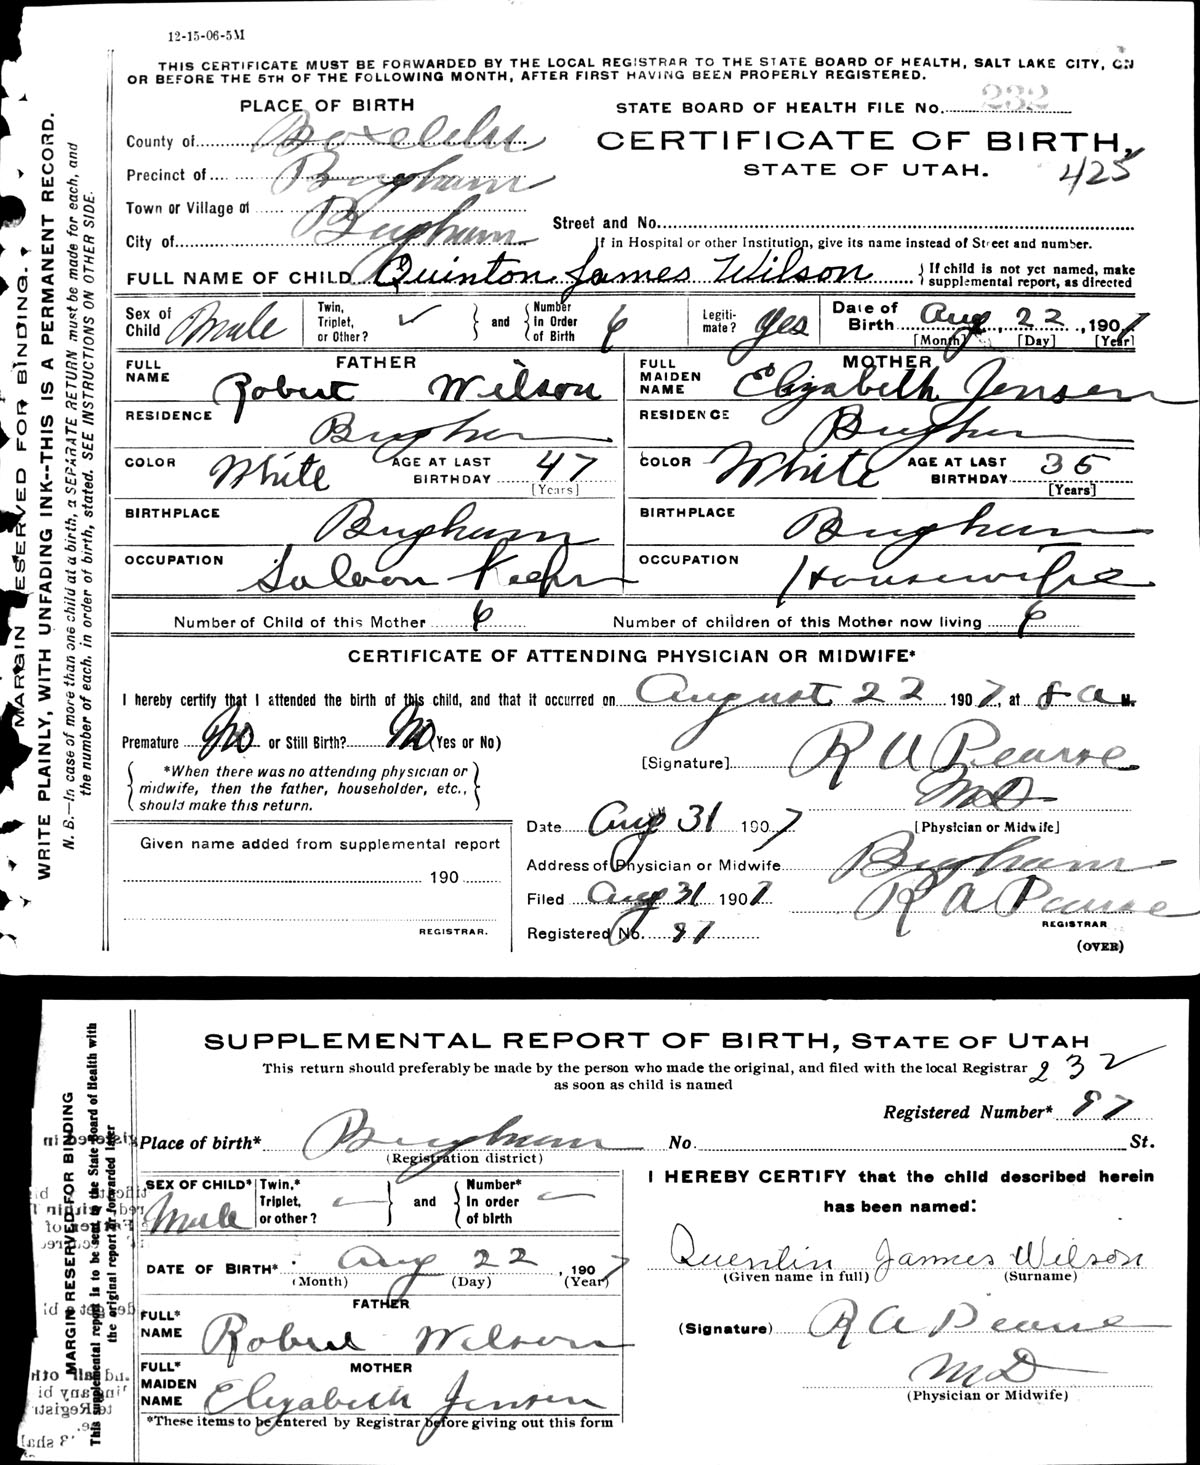 12-15-06-5M
THIS CERTIFICATE MUST BE FORWARDED BY THE LOCAL REGISTRAR TO THE STATE BOARD OF HEALTH, SALT LAKE CITY, ON
OR BEFORE THE 5TH OF THE FOLLOWING MONTH, AFTER FIRST HAVING BEEN PROPERLY REGISTERED.
PLACE OF BIRTH
STATE BOARD OF HEALTH FILE No. 232
County of Boxelder
CERTIFICATE OF BIRTH,
STATE OF UTAH.
425
Precinct of Brigham
Town or Village of Brigham
Street and No.
City of
If in Hospital or other Institution, give its name instead of Street and number.
FULL NAME OF CHILD Quinton James Wilson { If child is not yet named, make
supplemental report, as directed
Sex of Child Male
Twin, Triplet, or Other? ✓ } and { Number in Order of Birth 6
Legiti- mate? Yes
Date of Birth Aug, 22, 1907
[Month] [Day] [Year]
FATHER
FULL NAME Robert Wilson
RESIDENCE Brigham
COLOR White AGE AT LAST BIRTHDAY 47
[Years]
BIRTHPLACE Brigham
OCCUPATION Saloon Keeper
MOTHER
FULL MAIDEN NAME Elizabeth Jensen
RESIDENCE Brigham
COLOR White AGE AT LAST BIRTHDAY 35
[Years]
BIRTHPLACE Brigham
OCCUPATION Housewife
Number of Child of this Mother 6 Number of children of this Mother now living 6
CERTIFICATE OF ATTENDING PHYSICIAN OR MIDWIFE*
I hereby certify that I attended the birth of this child, and that it occurred on August 22 1907, at 8 a M.
Premature No or Still Birth? No (Yes or No)
*When there was no attending physician or
midwife, then the father, householder, etc.,
should make this return.
[Signature] R A Pearse
MD
[Physician or Midwife]
Date Aug 31 1907
Address of Physician or Midwife Brigham
Filed Aug 31 1907 R A Pearse
REGISTRAR
Registered No. 97
(OVER)
Given name added from supplemental report
190
REGISTRAR.
MARGIN RESERVED FOR BINDING.
WRITE PLAINLY, WITH UNFADING INK--THIS IS A PERMANENT RECORD.
N. B.—In case of more than one child at a birth, a SEPARATE RETURN must be made for each, and
the number of each, in order of birth, stated. SEE INSTRUCTIONS ON OTHER SIDE.
SUPPLEMENTAL REPORT OF BIRTH, STATE OF UTAH
This return should preferably be made by the person who made the original, and filed with the local Registrar
as soon as child is named
232
Registered Number* 97
Place of birth* Brigham No. St.
(Registration district)
SEX OF CHILD* Male
Twin,* Triplet, or other? } and { Number* In order of birth
DATE OF BIRTH* Aug 22, 1907
(Month) (Day) (Year)
FATHER
FULL* NAME Robert Wilson
MOTHER
FULL* MAIDEN NAME Elizabeth Jensen
*These items to be entered by Registrar before giving out this form
I HEREBY CERTIFY that the child described herein
has been named:
Quentin James Wilson
(Given name in full) (Surname)
(Signature) R A Pearse
MD
(Physician or Midwife)
MARGIN RESERVED FOR BINDING
This supplemental report is to be sent to the State Board of Health with
the original report or forwarded later